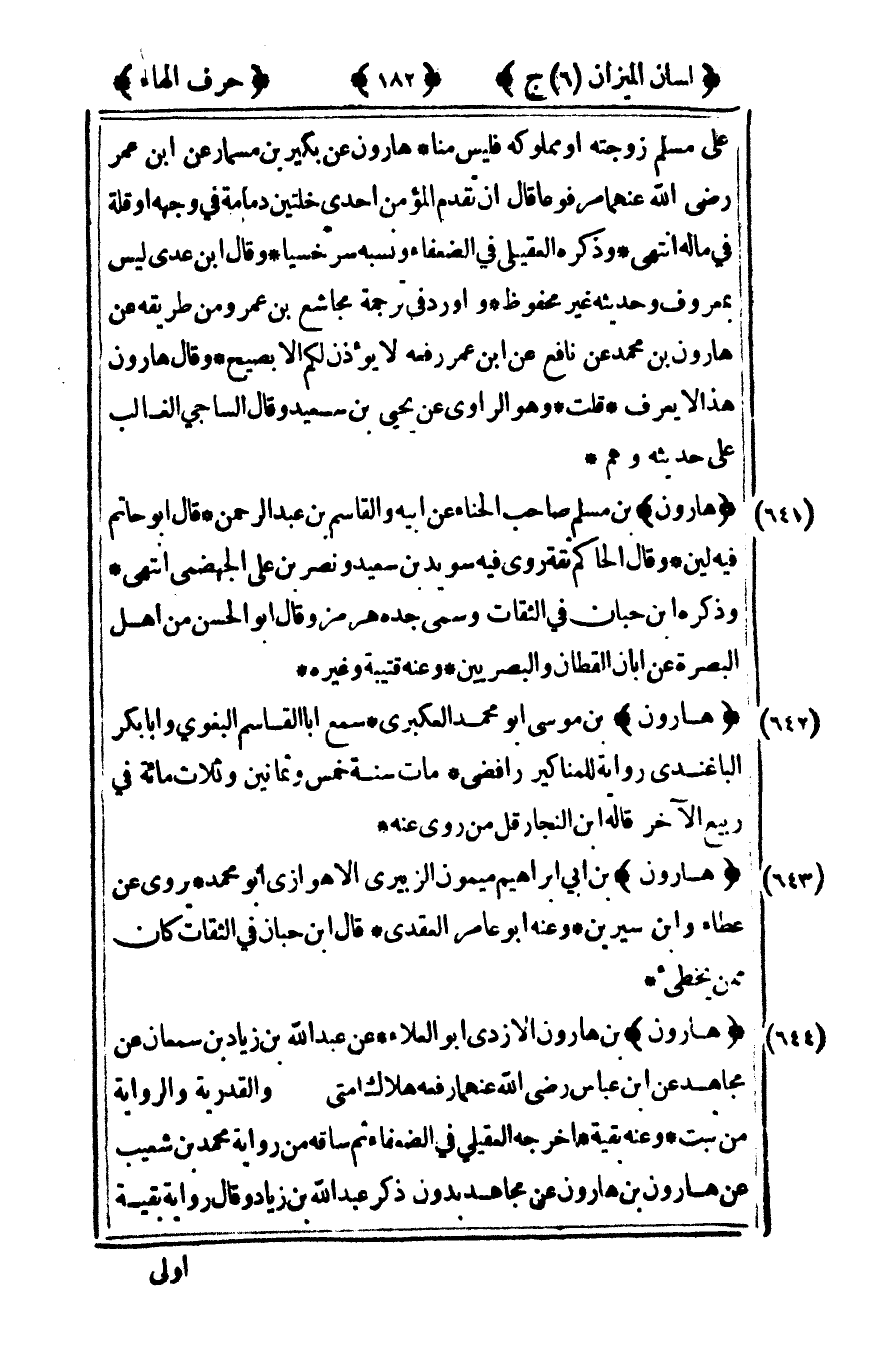 ﴿ لسان الميزان (٦) ج ﴾ ﴿ ١٨٢ ﴾ ﴿ حرف الهاء ﴾
على مسلم زوجته او مملوكه فليس منا * هارون عن بكير بن مسمار عن ابن عمر
رضى الله عنهما مرفوعا قال ان تقدم المؤمن احدى خلتين دمامة في وجهه او قلة
في ماله انتهى * وذكره العقيلي في الضعفاء ونسبه سرخسيا * وقال ابن عدى ليس
بمعروف وحديثه غير محفوظ * و اورد فى ترجمة مجاشع بن عمرو من طريقه عن
هارون بن محمد عن نافع عن ابن عمر رفعه لا يوءذن لكم الا بصيح * وقال هارون
هذا لا يعرف * قلت * وهو الراوى عن يحيى بن سعيد وقال الساجي الغالب
على حديثه وهم *
(٦٤١) ﴿ هارون ﴾ بن مسلم صاحب الحناء عن ابيه والقاسم بن عبد الرحمن * قال ابو حاتم
فيه لين * وقال الحاكم ثقة روى فيه سويد بن سعيد ونصر بن على الجهضمى انتهى *
وذكره ابن حبان في الثقات وسمى جده هرمز وقال ابو الحسن من اهل
البصرة عن ابان القطان والبصريين * وعنه قتيبة وغيره *
(٦٤٢) ﴿ هارون ﴾ بن موسى ابو محمد العكبرى * سمع ابا القاسم البغوي وابا بكر
الباغندى رواية للمناكير رافضى * مات سنة خمس وثمانين وثلاث مائة في
ربيع الآخر قاله ابن النجار قل من روى عنه *
(٦٤٣) ﴿ هارون ﴾ بن ابي ابراهيم ميمون الزبيرى الاهوازى ابو محمد * يروى عن
عطاء وابن سيرين * وعنه ابو عامر العقدى * قال ابن حبان في الثقات كان
ممن يخطىء *
(٦٤٤) ﴿ هارون ﴾ بن هارون الازدى ابو العلاء * عن عبد الله بن زياد بن سمعان عن
مجاهد عن ابن عباس رضى الله عنهما رفعه هلاك امتى والقدرية والرواية
من سبت * وعنه بقية * اخرجه العقيلي في الضعفاء ثم ساقه من رواية محمد بن شعيب
عن هارون بن هارون عن مجاهد بدون ذكر عبد الله بن زياد وقال رواية بقية
اولى